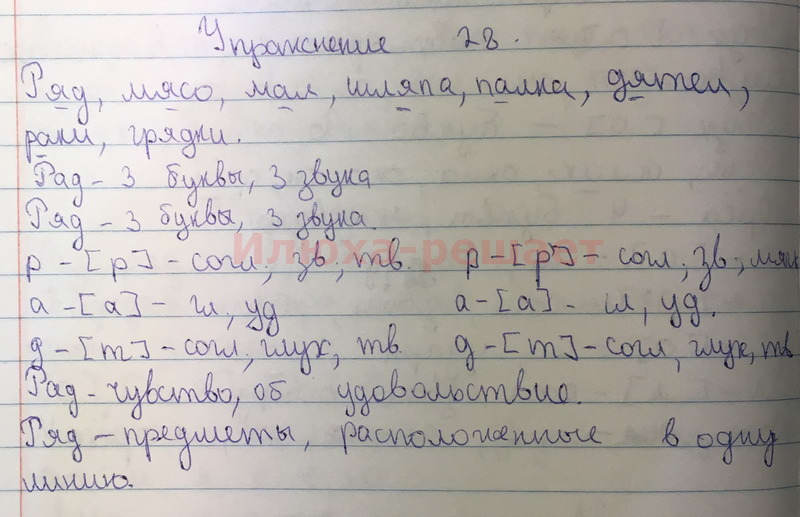 Упражнение 28.
Ряд, мясо, мал, шляпа, палка, дятел,
раки, грядки.
Рад - 3 буквы, 3 звука
Ряд - 3 буквы, 3 звука.
Илюха-решает
р - [р] - согл, зв, тв. р - [р'] - согл, зв, мягк
а - [а] - гл, уд а - [а] - гл, уд.
д - [т] - согл, глух, тв. д - [т] - согл, глух, тв
Рад - чувство, об удовольствие.
Ряд - предметы, расположенные в одну
линию.